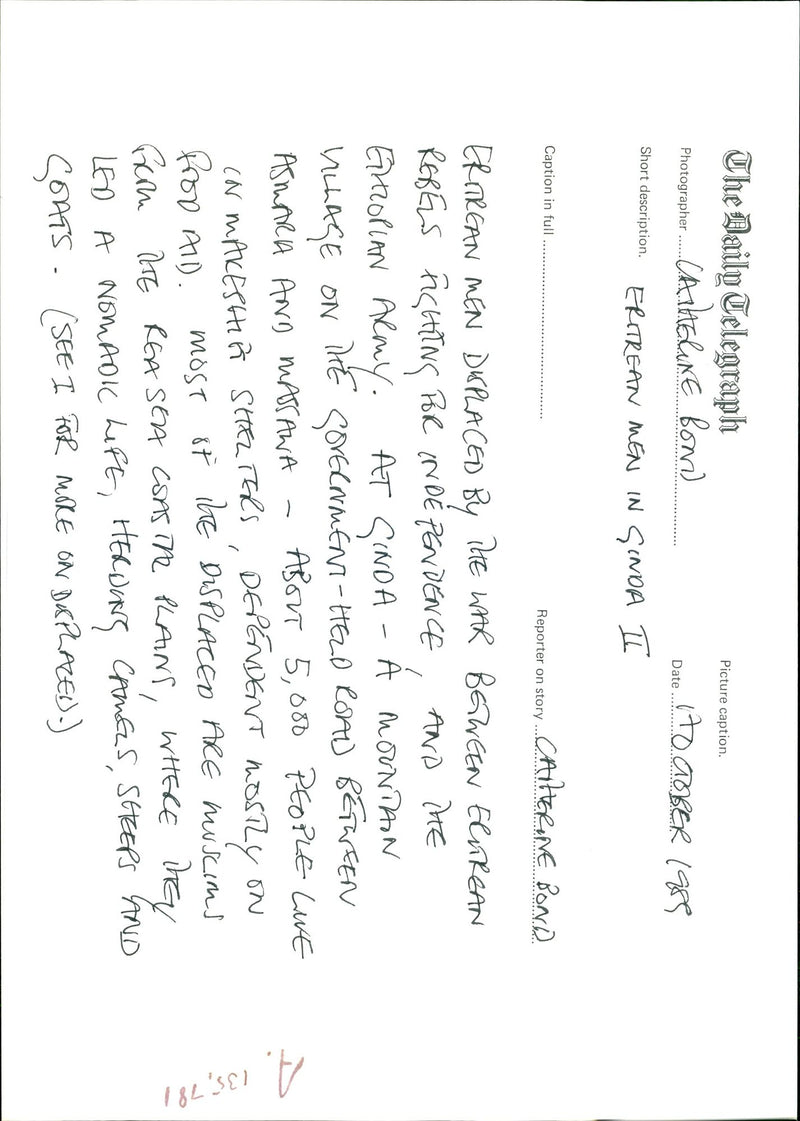 The Daily Telegraph
Picture caption.
Photographer ...... CATHERINE BOND
Date ...... 17 OCTOBER 1989
Short description. ERITREAN MEN IN GINDA II
Caption in full ......
Reporter on story ... CATHERINE BOND
ERITREAN MEN DISPLACED BY THE WAR BETWEEN ERITREAN
REBELS FIGHTING FOR INDEPENDENCE, AND THE
ETHIOPIAN ARMY. AT GINDA - A MOUNTAIN
VILLAGE ON THE GOVERNMENT-HELD ROAD BETWEEN
ASMARA AND MASSAWA - ABOUT 5,000 PEOPLE LIVE
IN MAKESHIFT SHELTERS, DEPENDENT MOSTLY ON
FOOD AID. MOST OF THE DISPLACED ARE MUSLIMS
FROM THE RED SEA COASTAL PLAINS, WHERE THEY
LED A NOMADIC LIFE, HERDING CAMELS, SHEEPS AND
GOATS. (SEE I FOR MORE ON DISPLACED.)
A. 135,781